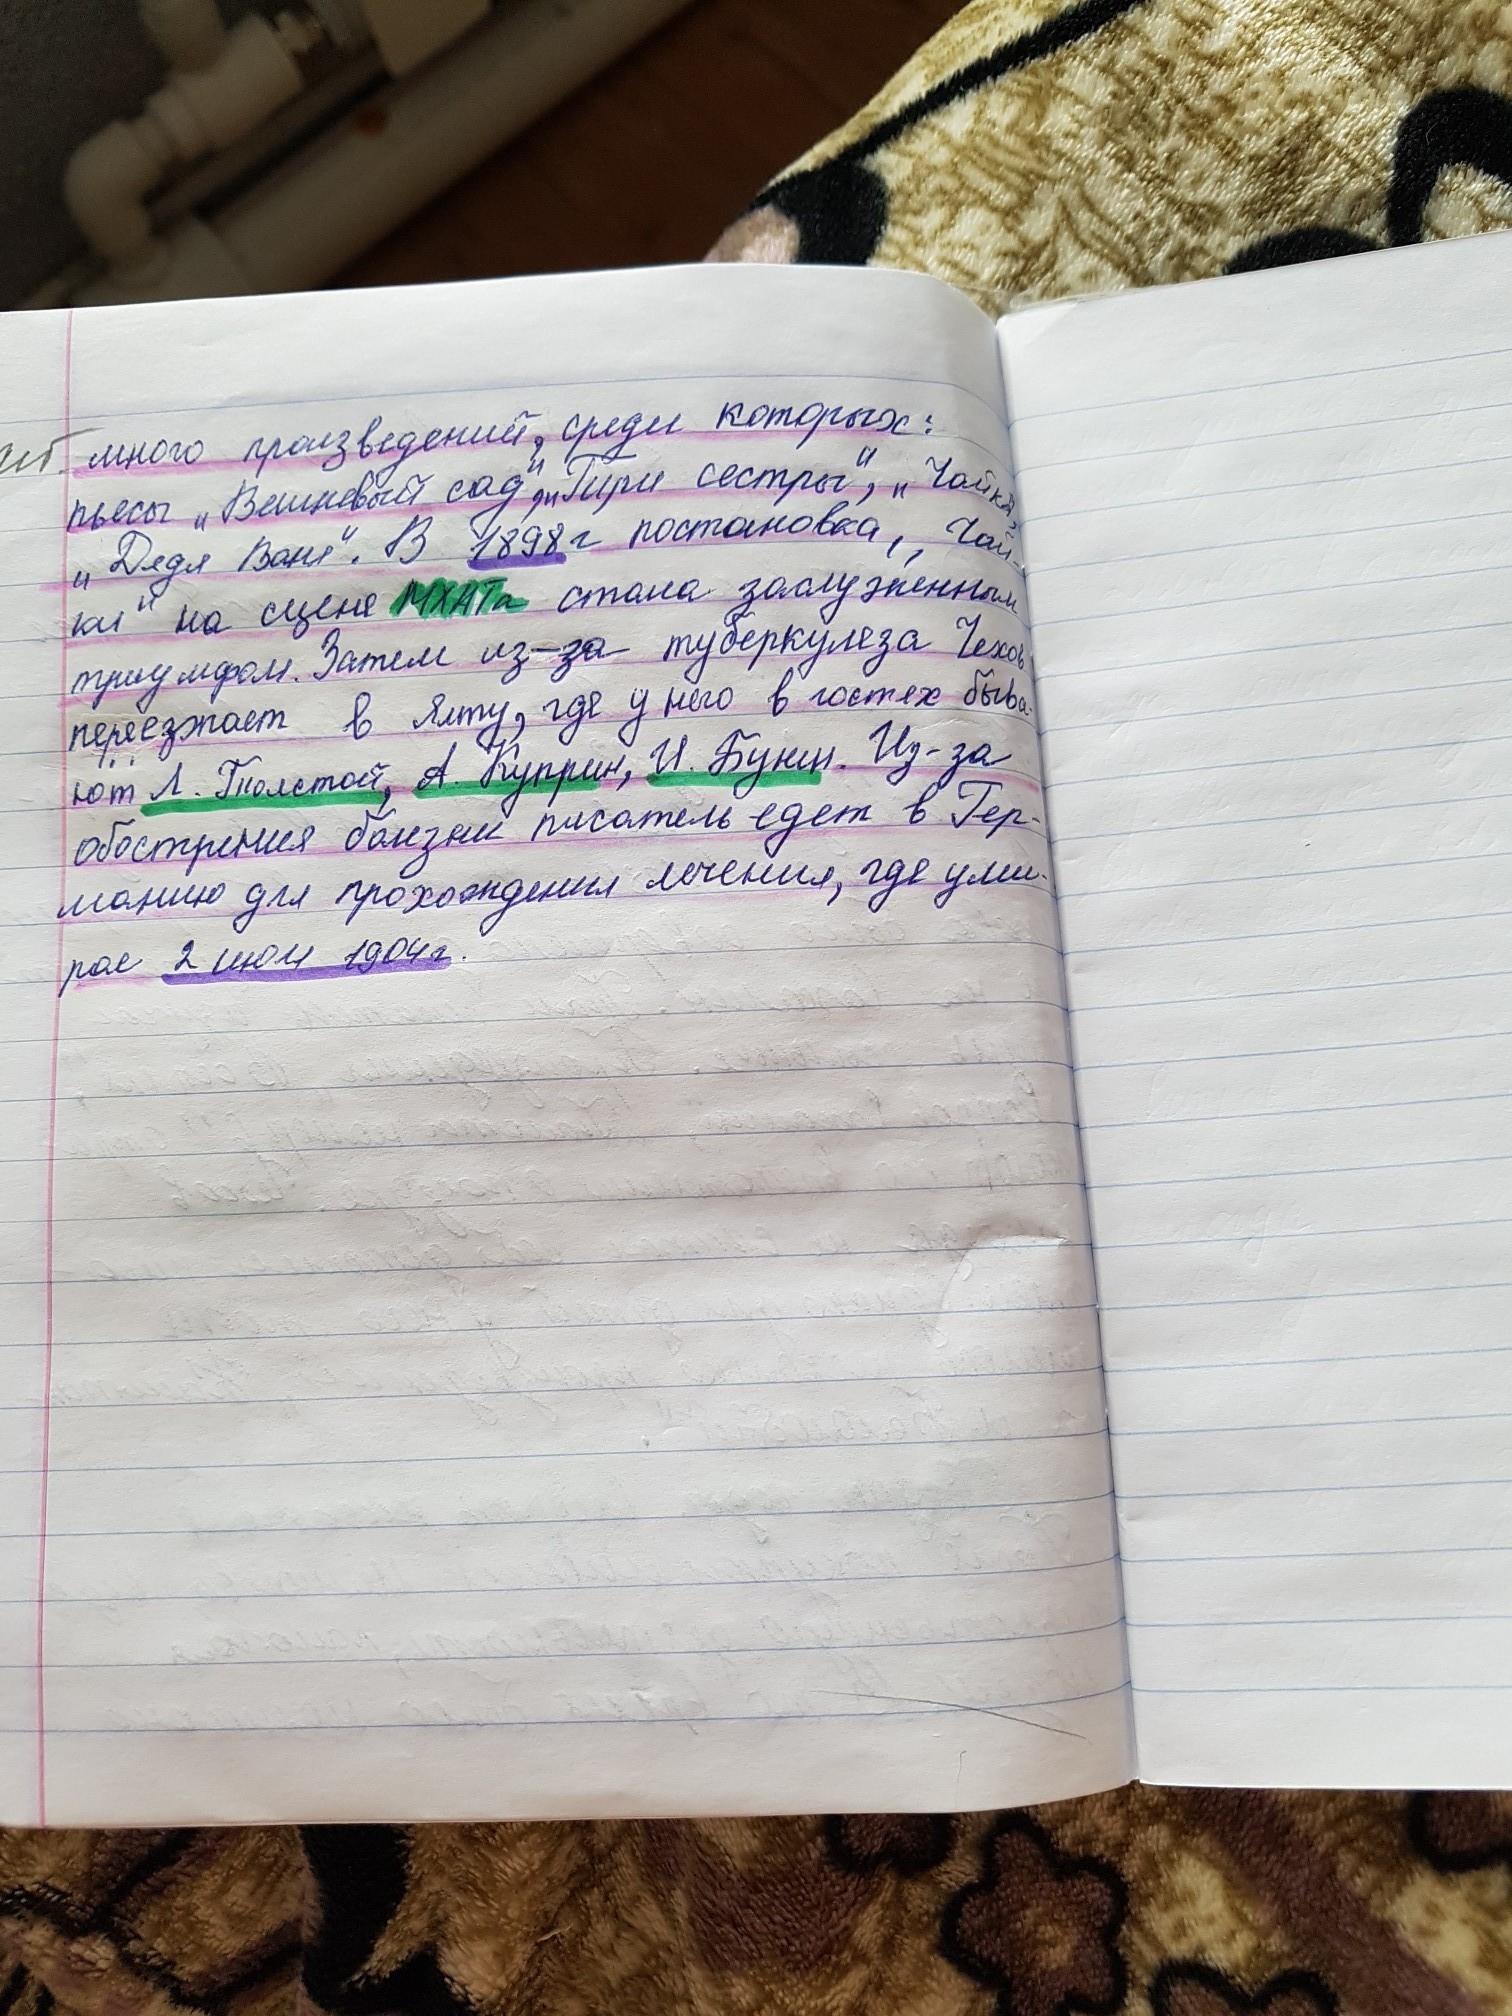 много произведений, среди которых:
пьесы „Вешневый сад", „Три сестры", „Чайка,
„Дядя Ваня". В 1898г постановка „Чай-
ки" на сцене МХАТа стала заслуженным
триумфом. Затем из-за туберкулеза Чехов
переезжает в Ялту, где у него в гостях быва-
ют Л. Толстой, А. Куприн, И. Бунин. Из-за
обострения болезни писатель едет в Гер-
манию для прохождения лечения, где уми-
рае 2 июля 1904г.